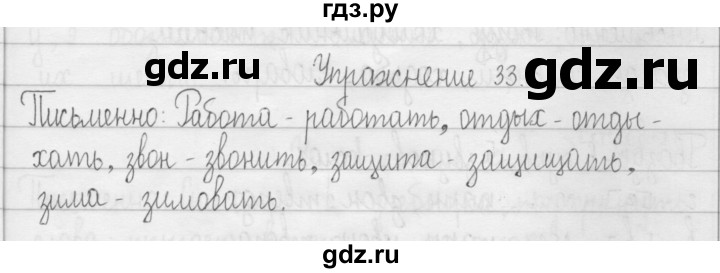 гдз.ру
gdz.ru
gdz.ru
Упражнение 33.
Письменно: Работа - работать, отдых - отды -
хать, звон - звонить, защита - защищать,
зима - зимовать.
gdz.ru
gdz.ru